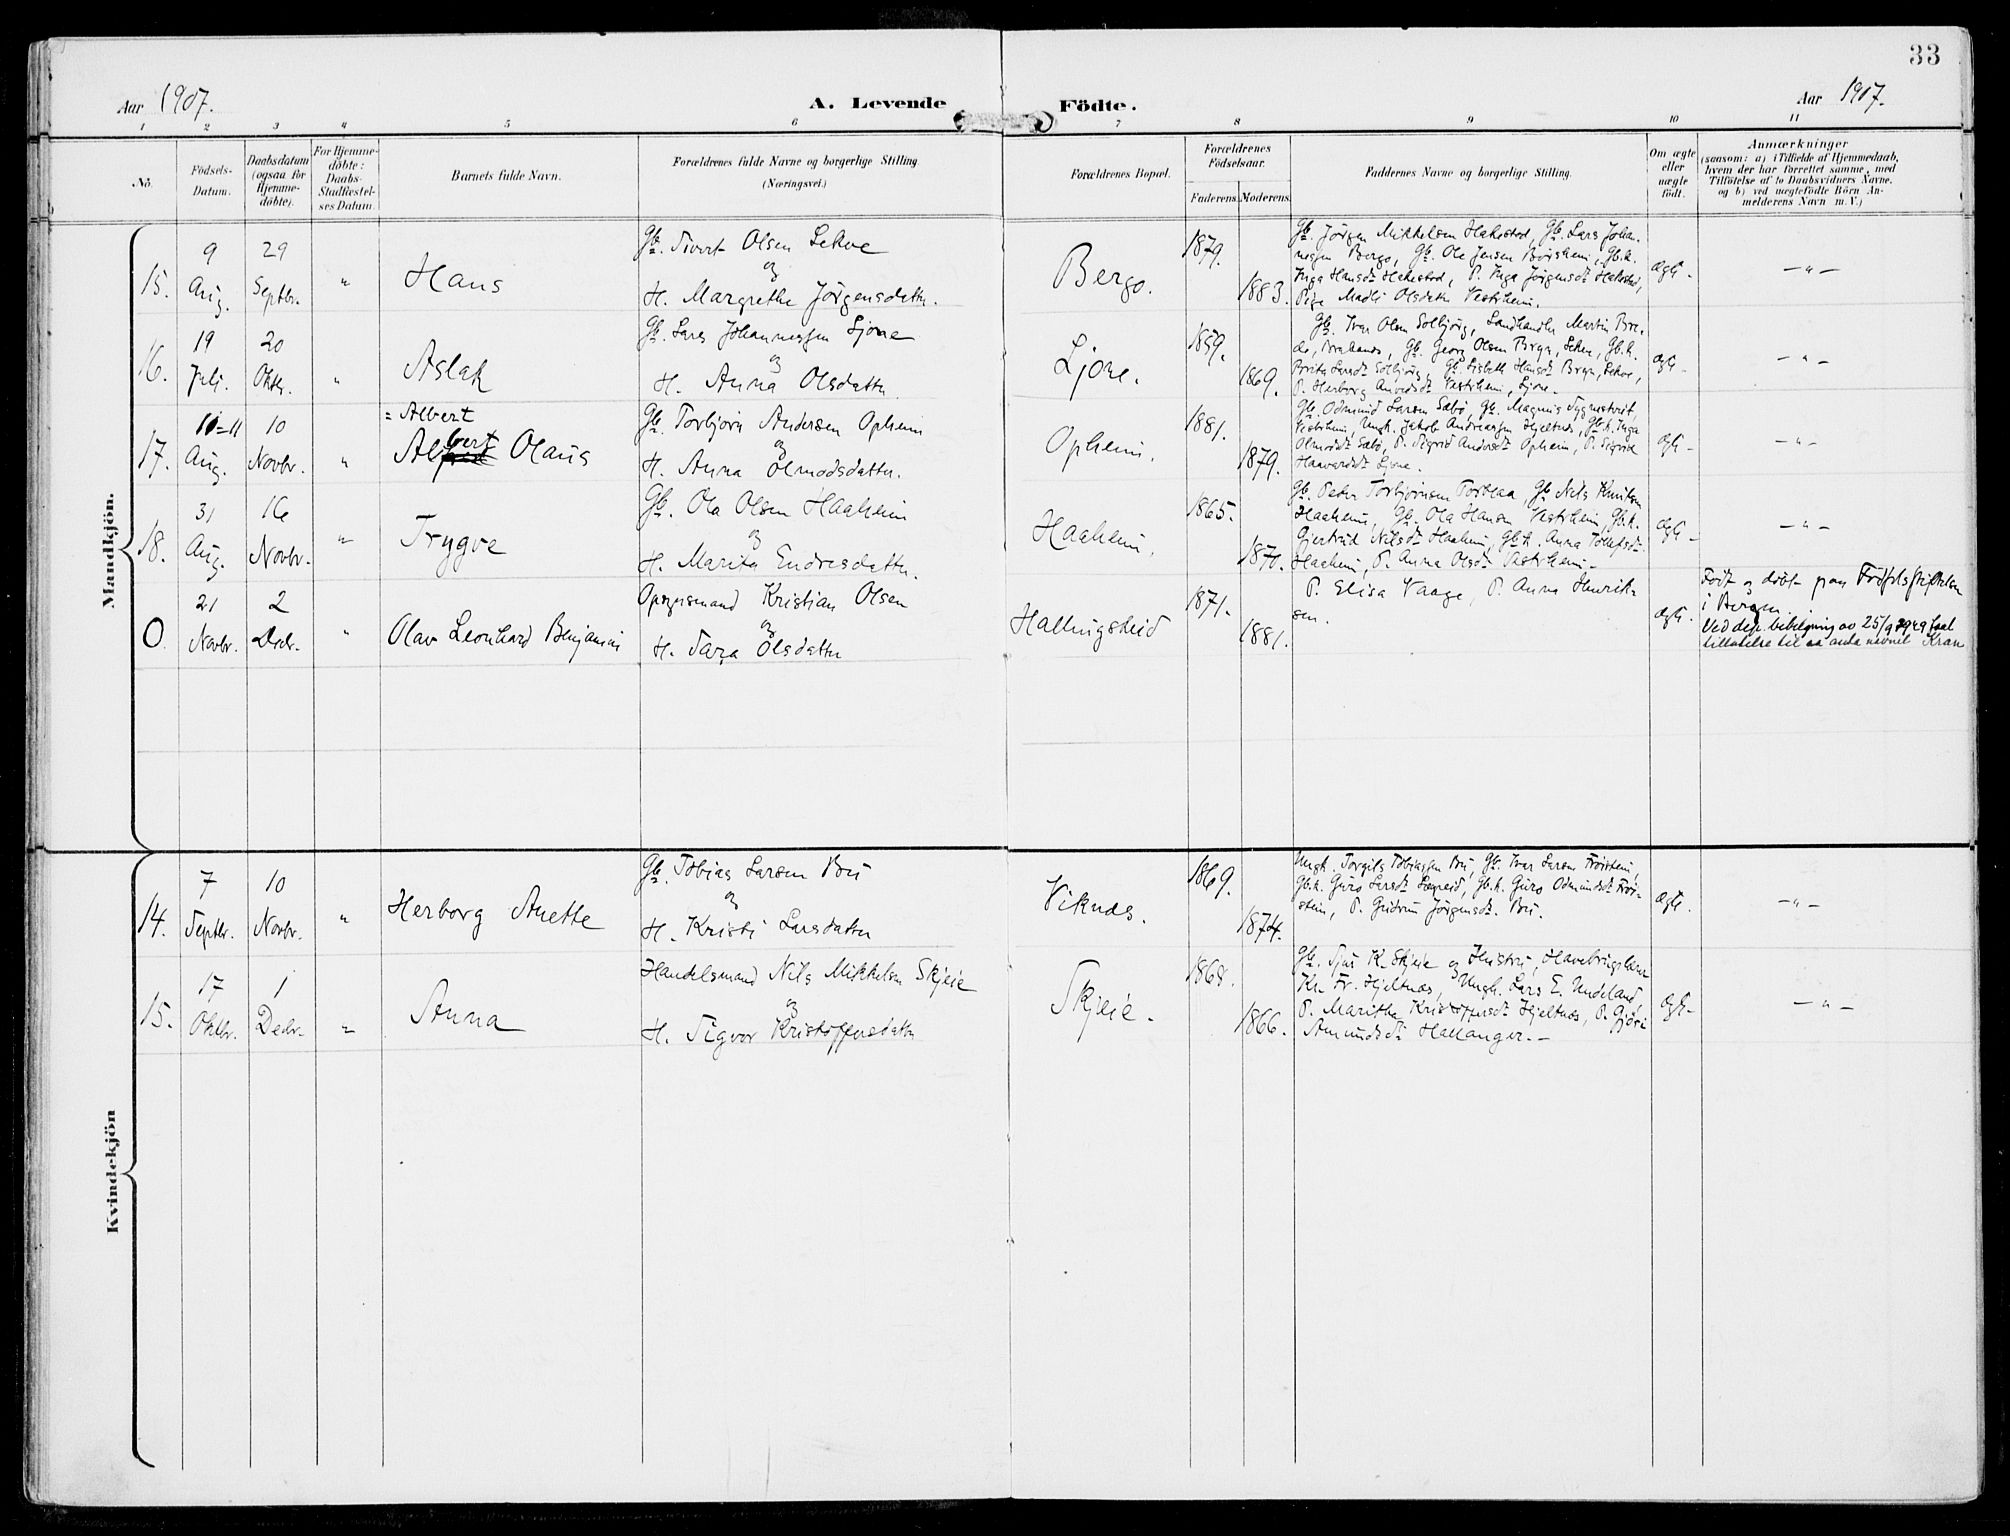 33
Aar 1907.
A. Levende Födte.
Aar 1907.
1 2 3 4 5 6 7 8 9 10 11
No.
Födsels-
Datum.
Daabsdatum
(ogsaa for
Hjemme-
döbte).
For Hjemme-
döbte:
Daabs-
Stadfæstel-
ses Datum.
Barnets fulde Navn.
Forældrenes fulde Navne og borgerlige Stilling.
(Næringsvei.)
Forældrenes Bopæl.
Forældrenes
Födselsaar.
Faderens. Moderens.
Faddernes Navne og borgerlige Stilling.
Om ægte
eller
uægte
födt.
Anmærkninger
(saasom: a) i Tilfælde af Hjemmedaab,
hvem der har forrettet samme, med
Tilföielse af to Daabsvidners Navne,
og b) ved uægtefödte Börn An-
melderens Navn m. V.)
Mandkjön.
15.
9
Aug.
29
Septbr.
"
Hans
Gb. Sivert Olsen Lekve
og
H. Margrethe Jörgensdatter.
Bergo.
1879.
1883.
Gb. Jörgen Mikkelsen Hakestad, Gb. Lars Johan-
nessen Bergo, Gb. Ole Jensen Börsheim, Gb.k.
Inga Hansdt Hakestad, P. Inga Jörgensdt Hakestad,
Pige Madli Olsdatter Vestrheim.
ægte.
— " —
16.
19
Juli.
20
Oktbr.
"
Aslak
Gb. Lars Johannessen Ljone
og
H. Anna Olsdatter
Ljone.
1859.
1869.
Gb. Ivar Olsen Solbjörg, Landhandler Martin Bre-
Gb. Georg Olsen Bryn, Lekve, Gb.k.
Brita Larsdt Solbjörg, Gb. Lisbeth Hansdt Bryn, Lekve,
P. Herborg Vestrheim, Ljone.
ægte.
— " —
17.
10-11
Aug.
10
Novbr.
"
= Albert
Albert Olaus
Gb. Torbjörn Andersen Opheim
og
H. Anna Olmodsdatter.
Opheim.
1881.
1879.
Gb. Odmund Larsen Sæbö, Gb. Magnus Sygnestveit,
Vestrheim, Ungk. Jakob Andreassen Hjeltnes, Gb.k. Inga
Olmodsdt Sæbö, P. Sigrid Andersdt Opheim, P. Sigvor
Haavardsdt Ljone.
ægte
— " —
18.
31
Aug.
16
Novbr.
"
Trygve
Gb. Ola Olsen Haaheim
og
H. Marita Endresdatter.
Haaheim.
1865.
1870.
Gb. Peter Torbjörnsen Torblaa, Gb. Nils Knutsen
Haaheim, Gb. Ola Hansen Vestrheim, Gb.k.
Gjertrud Nilsdt Haaheim, Gb.k. Anna Tollefsdt.
Haaheim, P. Anna Olsdt Vestrheim.
ægte
— " —
O.
21
Novbr.
2
Decbr.
"
Olav Leonhard Benjamin
Opsynsmand Kristian Olsen
og
H. Sara Olsdatter
Hallingskeid
1871.
1881.
P. Elisa Vaage, P. Anna Henrik-
sen.
ægte.
Född og döbt paa Födselsstiftelsen
i Bergen.
Ved dep. bevilgning av 25/9 1949 faat
tillatelse til aa anta navnet Kran
Kvindekjön
14.
7
Septbr.
10
Novbr.
"
Herborg Anette
Gb. Tobias Larsen Bu
og
H. Kristi Larsdatter
Viknes.
1869.
1874.
Ungk. Torgils Tobiassen Bu, Gb. Ivar Larsen Fröistein,
Gb.k. Guro Larsdt Lægreid, Gb.k. Guro Odmundsdt Fröi-
stein, P. Gudrun Jörgensdt. Bu.
ægte.
— " —
15.
17
Oktbr.
1
Decbr.
"
Anna
Handelsmand Nils Mikkelsen Skjeie
og
H. Sigvor Kristoffersdatter
Skjeie.
1868.
1866.
Gb. Sjur K. Skjeie og Hustru, Havebrugslærer
Kr. Fr. Hjeltnes, Ungk. Lars E. Undeland,
P. Maritha Kristoffersdt Hjeltnes, P. Gjöri
Amundsdt Hallanger.—
ægte
— " —